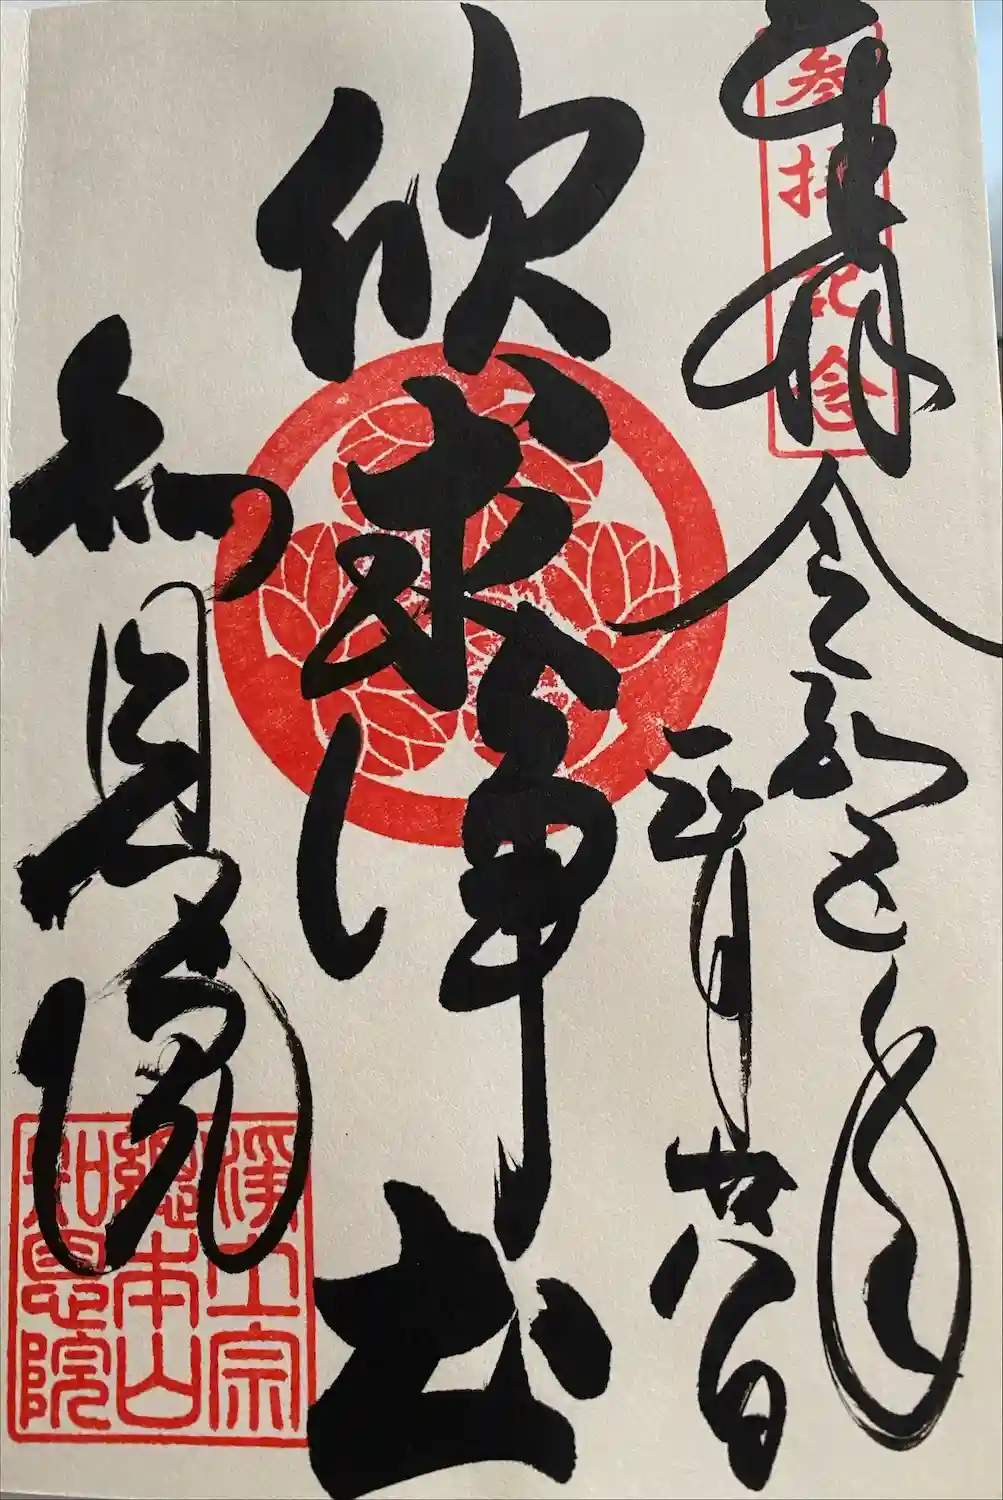 奉拝
参拝記念
令和七年
三月廿八日
欣求浄土
知恩院
浄土宗
總本山
知恩院